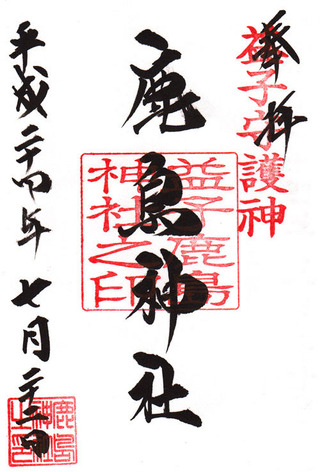 奉拝
益子守護神
鹿島神社
益子鹿島
神社之印
平成二十四年七月二十二日
鹿島
神社
之印